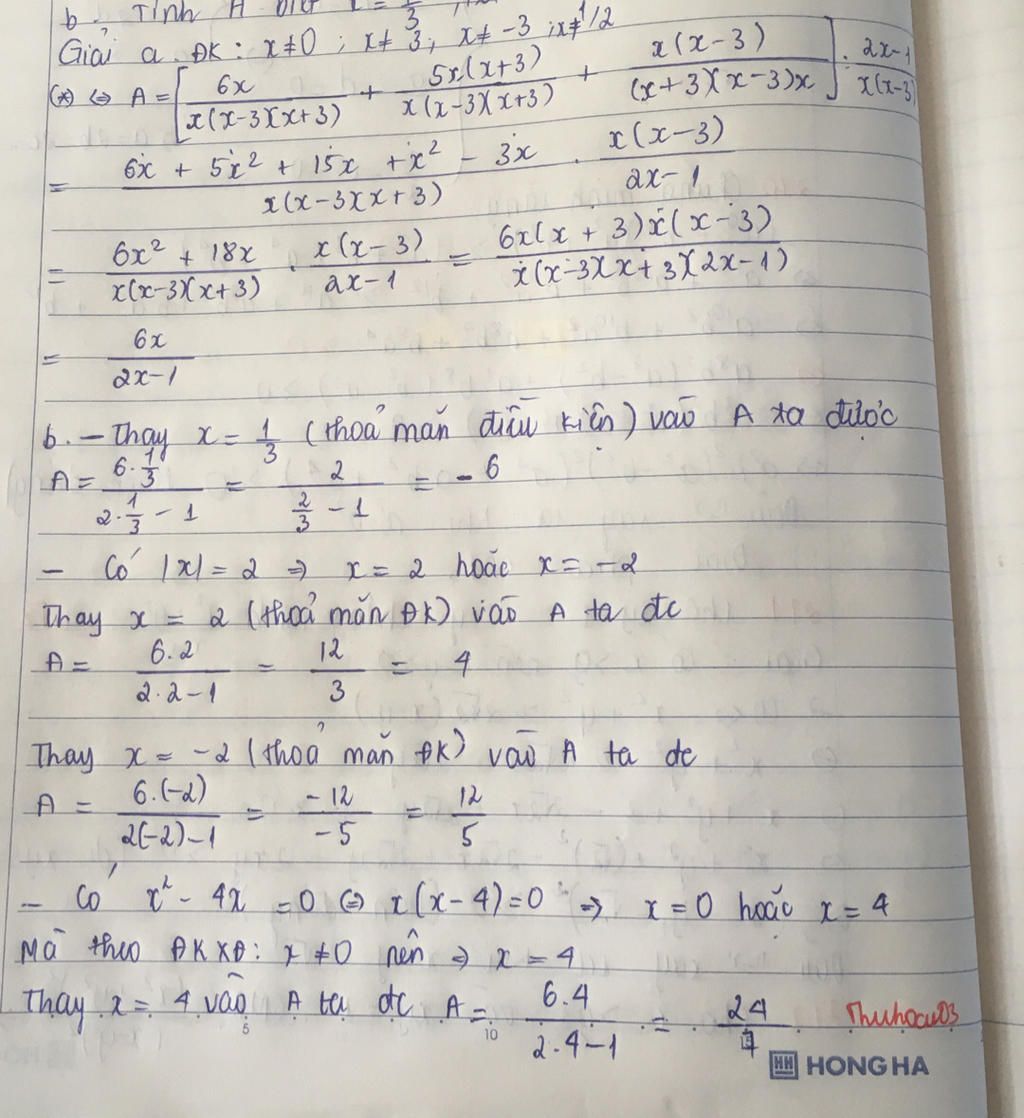 b. Tính A biết x = 1/3
Giải a. ĐK: x ≠ 0 ; x ≠ 3 ; x ≠ -3 ; x ≠ 1/2
(*) ⇔ A = [ 6x / x(x-3)(x+3) + 5x(x+3) / x(x-3)(x+3) + x(x-3) / (x+3)(x-3)x ] : 2x-1 / x(x-3)
= 6x + 5x² + 15x + x² - 3x / x(x-3)(x+3) . x(x-3) / 2x-1
= 6x² + 18x / x(x-3)(x+3) . x(x-3) / 2x-1 = 6x(x+3)x(x-3) / x(x-3)(x+3)(2x-1)
= 6x / 2x-1
b. - Thay x = 1/3 (thoả mãn điều kiện) vào A ta được
A = 6.1/3 / 2.1/3 - 1 = 2 / 2/3 - 1 = -6
- Có |x| = 2 ⇒ x = 2 hoặc x = -2
Thay x = 2 (thoả mãn ĐK) vào A ta đc
A = 6.2 / 2.2-1 = 12/3 = 4
Thay x = -2 (thoả mãn ĐK) vào A ta đc
A = 6.(-2) / 2(-2)-1 = -12/-5 = 12/5
- Có x² - 4x = 0 ⇔ x(x-4)=0 ⇒ x=0 hoặc x = 4
Mà theo ĐKXĐ: x ≠ 0 nên ⇒ x = 4
Thay x = 4 vào A ta đc A = 6.4 / 2.4-1 = 24/7 Thuhocu03
5 10
HH HONG HA